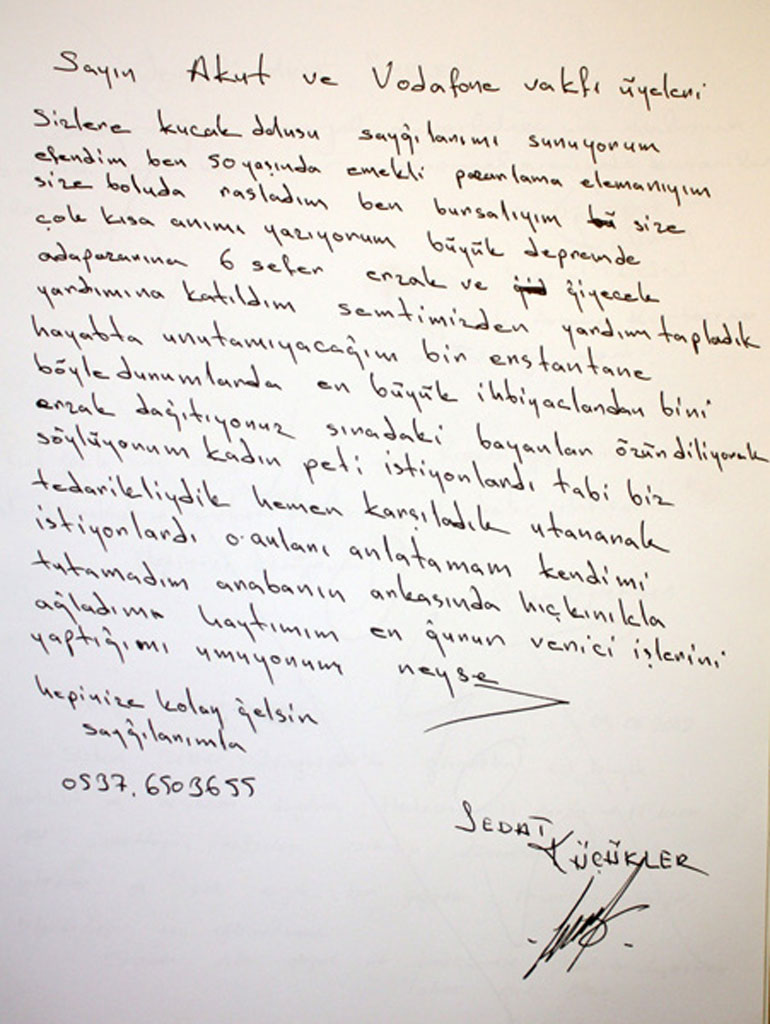 Sayın Akut ve Vodafone vakfı üyeleri
Sizlere kucak dolusu saygılarımı sunuyorum
efendim ben 50 yaşında emekli pazarlama elemanıyım
size boluda rasladım ben bursalıyım size
çok kısa anımı yazıyorum büyük depremde
adapazarına 6 sefer erzak ve giyecek
yardımına katıldım semtimizden yardım tapladık
hayatta unutamıyacağım bir enstantane
böyle durumlarda en büyük ihtiyaclardan biri
erzak dağıtıyoruz sıradaki bayanlar özürdiliyorak
söylüyorum kadın peti istiyorlardı tabi biz
tedarikliydik hemen karşıladık utanarak
istiyorlardı o anları anlatamam kendimi
tutamadım arabanın arkasında hıçkırıkla
ağladıma haytımım en gurur verici işlerini
yaptığımı umuyorum neyse
hepinize kolay gelsin
saygılarımla
0537.6503655
SEDAT
KÜÇÜKLER